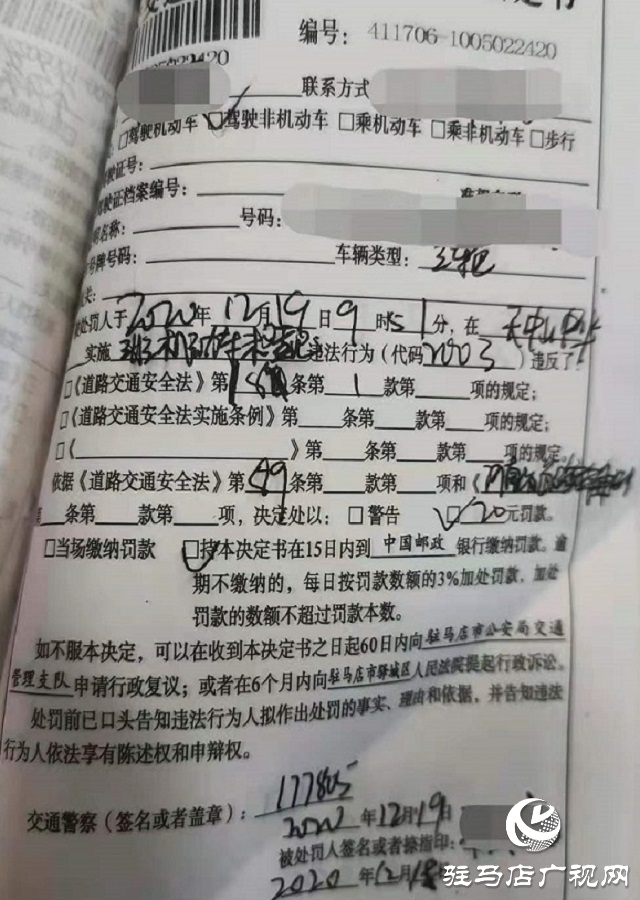 编号: 411706-1005022420
05022420
联系方式
□驾驶机动车 □驾驶非机动车 □乘机动车 □乘非机动车 □步行
驾驶证号:
驾驶证档案编号:
名称: 号码:
号牌号码: 车辆类型:
被处罚人于2020年12月19日9时51分, 在
实施 违法行为 (代码2003) 违反了:
□《道路交通安全法》第 条第1款第 项的规定;
□《道路交通安全法实施条例》第 条第 款第 项的规定;
□《 》第 条第 款第 项的规定。
依据《道路交通安全法》第89条第 款第 项和《
第 条第 款第 项, 决定处以: □警告 □20元罚款。
□当场缴纳罚款 □持本决定书在15日内到中国邮政银行缴纳罚款。逾
期不缴纳的, 每日按罚款数额的3%加处罚款, 加处
罚款的数额不超过罚款本数。
如不服本决定, 可以在收到本决定书之日起60日内向驻马店市公安局交通
管理支队申请行政复议; 或者在6个月内向驻马店市驿城区人民法院提起行政诉讼。
处罚前已口头告知违法行为人拟作出处罚的事实、理由和依据, 并告知违法
行为人依法享有陈述权和申辩权。
交通警察 (签名或者盖章):
2020年12月19日
被处罚人签名或者捺指印:
2020年12月
驻马店广视网